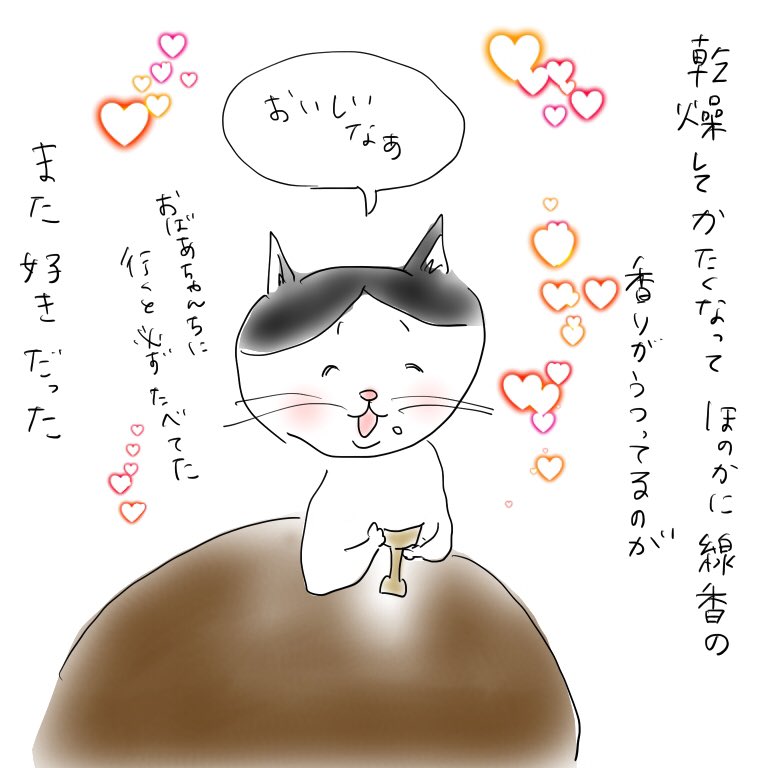 乾燥してかたくなって ほのかに 線香の
香りがうつってるのが
おいしい
なぁ
おばあちゃんちに
行くと 必ず たべてた
また 好き だった